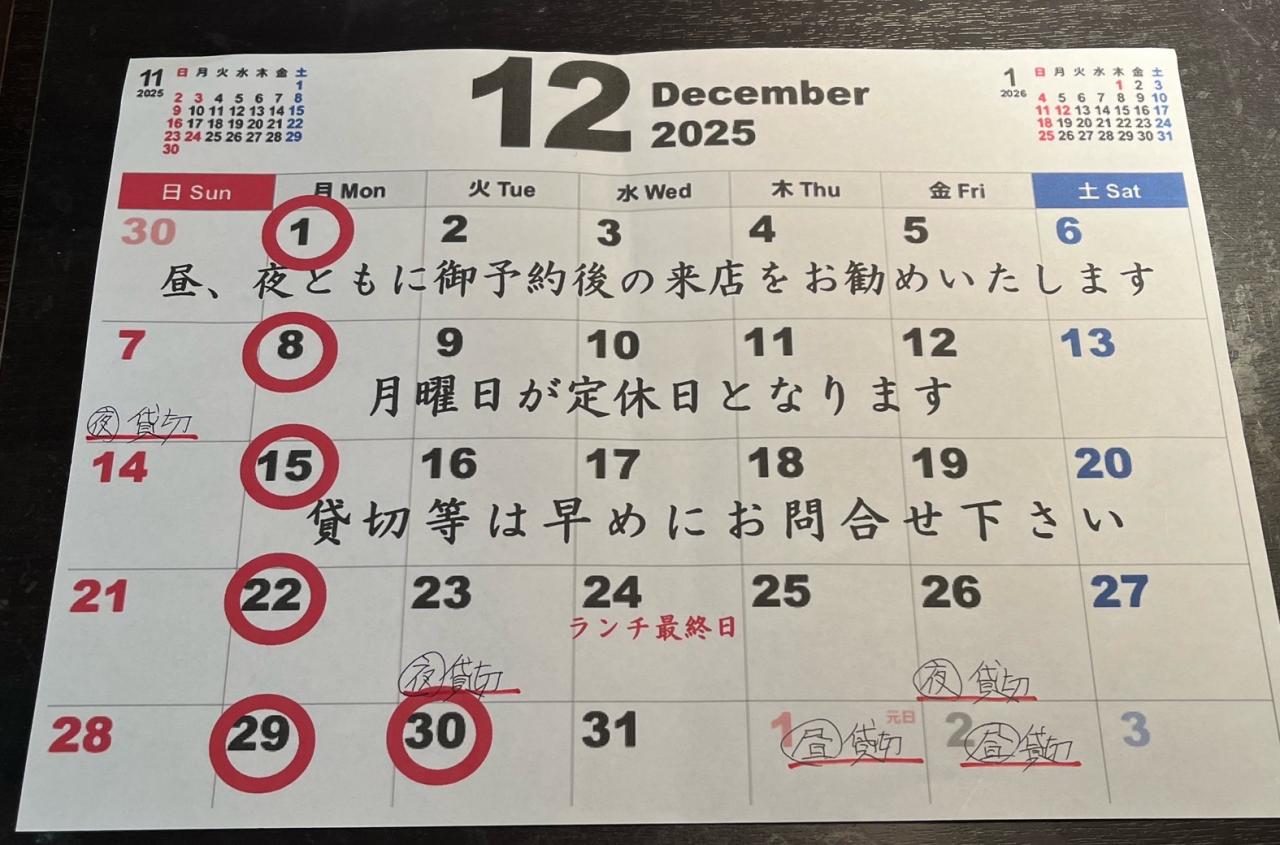 11
2025
日 月 火 水 木 金 土
1
2 3 4 5 6 7 8
9 10 11 12 13 14 15
16 17 18 19 20 21 22
23 24 25 26 27 28 29
30
12
December
2025
1
2026
日 月 火 水 木 金 土
1 2 3
4 5 6 7 8 9 10
11 12 13 14 15 16 17
18 19 20 21 22 23 24
25 26 27 28 29 30 31
日 Sun 月 Mon 火 Tue 水 Wed 木 Thu 金 Fri 土 Sat
30 1 2 3 4 5 6
昼、夜ともに御予約後の来店をお勧めいたします
7 8 9 10 11 12 13
月曜日が定休日となります
夜 貸切
14 15 16 17 18 19 20
貸切等は早めにお問合せ下さい
21 22 23 24 25 26 27
ランチ最終日
夜 貸切 夜 貸切
28 29 30 31 1 元日 2 3
昼 貸切 昼 貸切